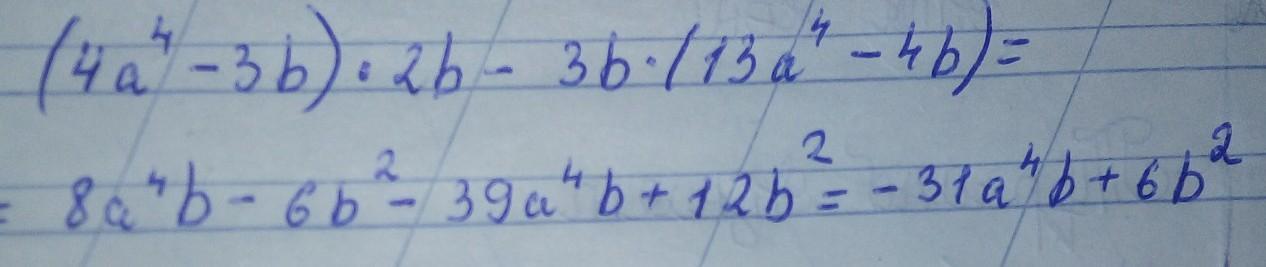 (4a⁴ - 3b) · 2b - 3b · (13a⁴ - 4b) =
= 8a⁴b - 6b² - 39a⁴b + 12b² = - 31a⁴b + 6b²